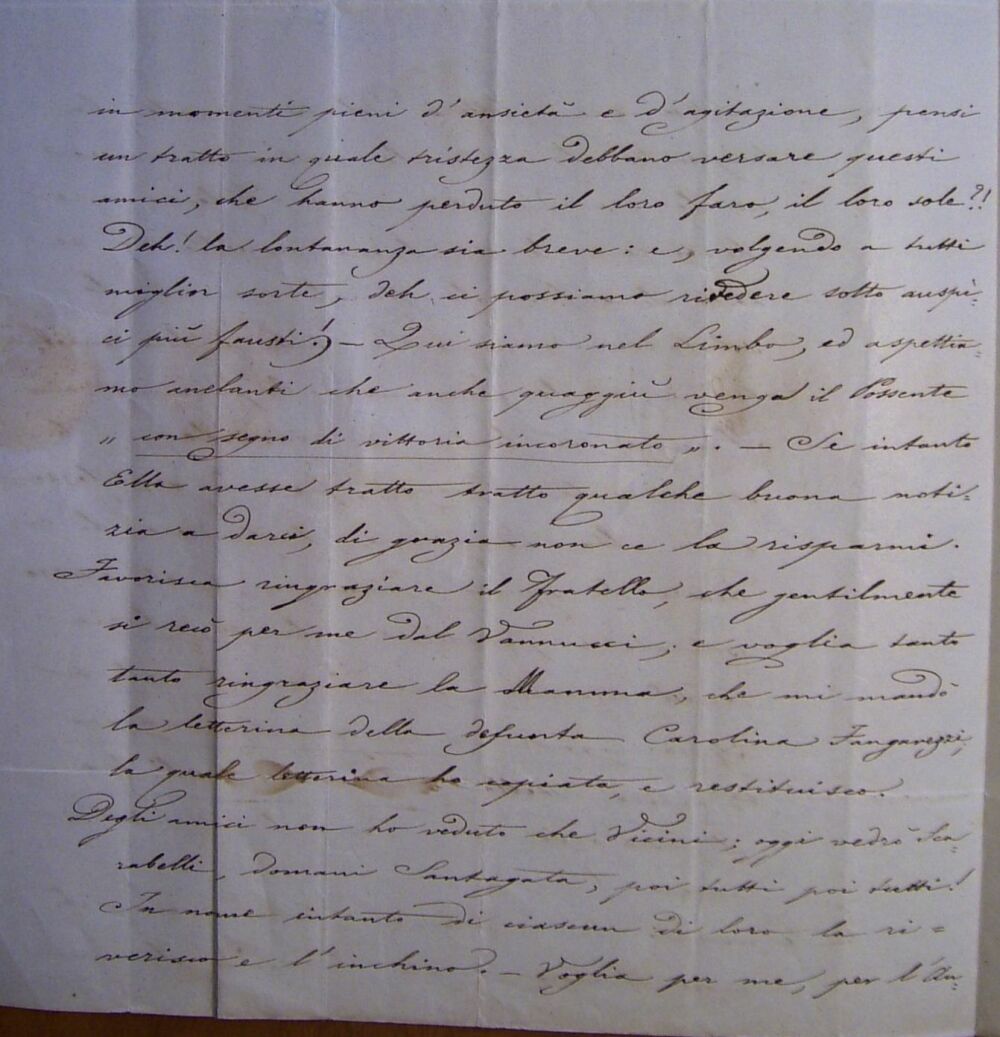 in momenti pieni d'ansietà e d'agitazione, pensi
un tratto in quale tristezza debbano versare questi
amici, che hanno perduto il loro faro, il loro sole?!
Deh! la lontananza sia breve: e, volgendo a tutti
miglior sorte, deh ci possiamo rivedere sotto auspi=
ci più fausti! — Qui siamo nel Limbo, ed aspettia=
mo anelanti che anche quaggiù venga il Possente
„ con segno di vittoria incoronato „. — Se intanto
Ella avesse tratto tratto qualche buona noti=
zia a darci, di grazia non ce la risparmi.
Favorisca ringraziare il fratello, che gentilmente
si recò per me dal Vannucci; e voglia tanto
tanto ringraziare la Mamma, che mi mandò
la letterina della defunta Carolina
la quale letterina ho copiata, e restituisco.
Degli amici non ho veduto che Vicini; oggi vedrò Sca=
rabelli, domani Santagata, poi tutti poi tutti!
In nome intanto di ciascun di loro la ri=
verisco e l'inchino. — Voglia per me, per l'Au=